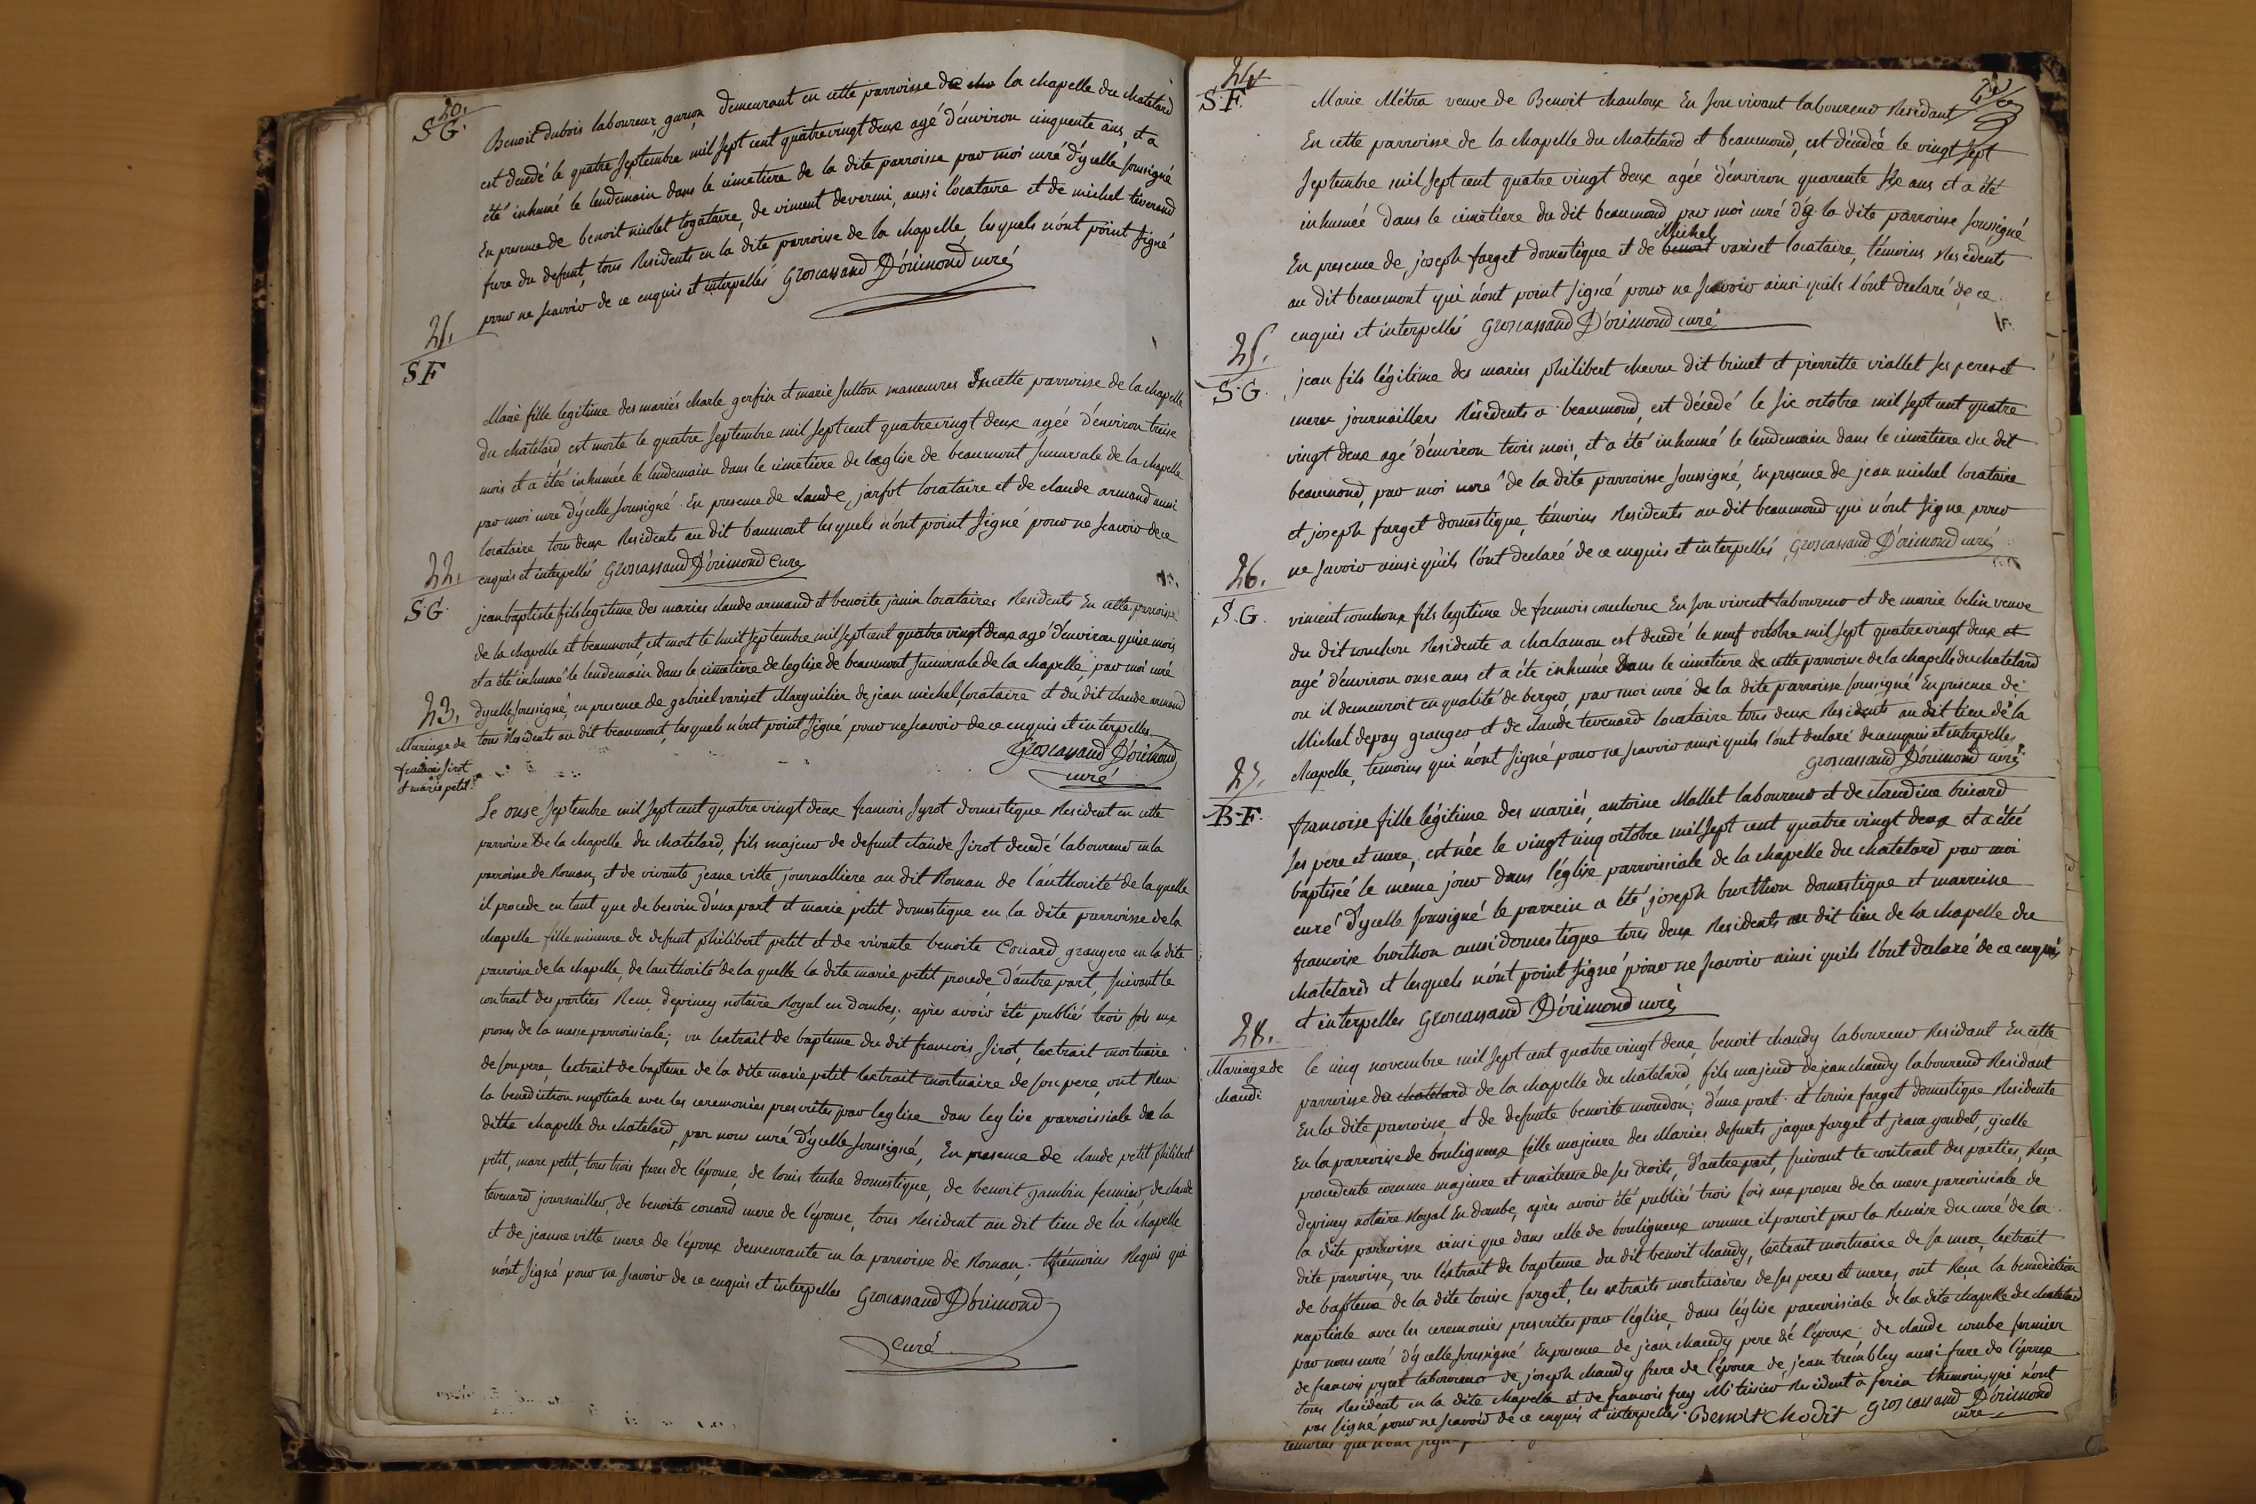 20.
S G.
Benoit dubois laboureur garçon demeurant en cette parroisse de la chapelle du chatelard
est decedé le quatre septembre mil sept cent quatrevingt deux agé d'environ cinquente ans, et a
été inhumé le lendemain dans le cimetiere de la dite parroisse par moi curé d'ycelle soussigné
En presence de benoit nicolet logataire, de vincent devermi, aussi locataire et de michel tevenard
frere du defunt, tous Residents en la dite parroise de la chapelle lesquels n'ont point signé
pour ne scavoir de ce enquis et interpellés Groscassand D'orimond curé
21.
S F
Marie fille legitime des mariés charle gerfin et marie sutton maneuvres En cette parroisse de la chapelle
du chatelard est morte le quatre septembre mil sept cent quatrevingt deux agéé d'environ treise
mois et a étéé inhumée le lendemain dans le cimetiere de l'eglise de beaumont succursale de la chapelle
par moi curé d'ycelle soussigné. En presence de claude jarfot locataire et de claude armand aussi
locataire tous deux Residents au dit baumont lesquels n'ont point signé pour ne scavoir de ce
enquis et interpellés Groscassand D'orimond Curé
22.
S G
jean baptiste fils legitime des maries claude armand et benoite janin locataires Residents En cette parroisse
de la chapelle et beaumont, est mort le huit septembre mil sept cent quatre vingt deux agé d'environ quise mois
et a été inhumé le lendemain dans le cimetiere de leglise de beaumont succursale de la chapelle, par moi curé
d'ycelle soussigné, en presence de gabriel variset Marguilier de jean michel locataire et du dit claude armand
tous Residents au dit beaumont, lesquels n'ont point signé pour ne scavoir de ce enquis et interpelles
Groscassand D'orimond
curé
23.
Mariage de
francois sirot
et marie petit.
Le onse septembre mil sept cent quatre vingt deux francois syrot domestique Resident en cette
parroise de la chapelle du chatelard, fils majeur de defunt claude sirot decedé laboureur en la
parroisse de Roman, et de vivante jeane vitte journalliere au dit Roman de l'authorité de laquelle
il procede en tant que de besoin d'une part et marie petit domestique en la dite parroisse de la
chapelle fille mineure de defunt philibert petit et de vivante benoite Couard grangere en la dite
parroise de la chapelle, de lauthorité de la quelle la dite marie petit procede d'autre part, suivant le
contrait des parties Recu depiney notaire Royal en dombes; apres avoir été publiés trois fois aux
prones de la messe parroissiale; vu lextrait de bapteme du dit francois sirot, lextrait mortuaire
de son pere, lextrait de bapteme de la dite marie petit lextrait mortuaire de son pere, ont Recu
la benediction nuptiale avec les ceremonies prescrites par leglise dans leglise parroissiale de la
ditte chapelle du chatelard, par nous curé d'ycelle soussigné, En presence de claude petit philibert
petit, marc petit, tous trois freres de l'épouse, de louis tuche domestique, de benoit gambin fermier, de claude
tevenard journaillier, de benoite couard mere de l'épouse, tous Resident au dit lieu de la chapelle
et de jeanne vitte mere de l'époux demeurante en la parroisse de Roman; themoins Requis qui
n'ont signé pour ne scavoir de ce enquis et interpelles Groscassand D'orimond
curé
24
S F.
Marie Métra veuve de Benoit chanloux En son vivant laboureur Residant
En cette parroisse de la chapelle du chatelard et beaumond, est décédéé le vingt sept
septembre mil sept cent quatre vingt deux agéé d'environ quarente six ans et a été
inhuméé dans le cimetiere du dit beaumond par moi curé d la dite parroisse soussigné
Michel
En presence de joseph farget domestique et de benoit variset locataire, témoins Residents
au dit beaumont qui n'ont point signé pour ne scavoir ainsi quils l'ont declaré de ce
enquis et interpellés Groscassand D'orimond curé
25.
S G.
jean fils légitime des maries philibert chevru dit brinet et pierrette viallet ses peres et
meres journailliers Residents a beaumond, est décedé le six octobre mil sept cent quatre
vingt deux agé d'environ trois mois, et a été inhumé le lendemain dans le cimetiere du dit
beaumond, par moi curé de la dite parroisse soussigné, En presence de jean michel locataire
et joseph farget domestique, témoins Residents au dit beaumond qui n'ont signe pour
ne scavoir ainsi quils l'ont declaré de ce enquis et interpellés Groscassand D'orimond curé
26.
S. G.
vincent couchoux fils legitime de francois couchoux En son vivent laboureur et de marie belin veuve
du dit couchou Residente a chalamon est decedé le neuf octobre mil sept quatre vingt deux et
agé d'environ onse ans et a été inhumé Dans le cimetiere de cette parroisse de la chapelle du chatelard
ou il demeuroit en qualité de berger, par moi curé de la dite parroisse soussigné En presence de
Michel depay granger et de claude tevenard locataire tous deux Residents au dit lieu de la
chapelle, temoins qui n'ont signé pour ne scavoir ainsi quils l'ont declaré de ce enquis et interpelles
Groscassand D'orimond curé
27.
B-F.
francoise fille légitime des mariés antoine Mallet laboureur et de claudine bricard
ses pere et mere, est née le vingt cinq octobre mil sept cent quatre vingt deux et a étéé
baptiséé le meme jour dans l'église parroissiale de la chapelle du chatelard par moi
curé d'ycelle soussigné le parrein a été joseph burthon domestique et marreine
francoise burthon aussi domestique tous deux Residents au dit lieu de la chapelle du
chatelard et lesquels n'ont point signé pour ne scavoir ainsi quils l'ont declaré de ce enquis
et interpelles Groscassand D'orimond curé
28.
Mariage de
chaudi
le cinq novembre mil sept cent quatre vingt deux benoit chaudy laboureur Residant En cette
parroisse du chatelard de la chapelle du chatelard, fils majeur de jean chaudy laboureur Residant
En la dite parroisse, et de defunte benoite moudon; d'une part. et louise farget domestique Residente
En la parroise de bouligneux fille majeure des Maries defunts jaque farget et jeane goudet, ycelle
procedente comme majeure et maitresse de ses droits, d'autre part, suivant le contrait des parties, Recu
depiney notaire Royal En dombe, après avoir été publiés trois fois aux prones de la messe parroissiale de
la dite parroisse ainsi que dans celle de bouligneux comme il paroit par la Remise du curé de la
dite parroisse, vu l'extrait de bapteme du dit benoit chaudy, lextrait mortuaire de sa mere, lextrait
de bapteme de la dite louise farget, les extraits mortuaires de ses peres et meres, ont Recu la benediction
nuptiale avec les ceremonies prescrites par l'église, dans l'église parroissiale de la dite chapelle du chatelard
par nous curé d'ycelle soussigné En presence de jean chaudy pere de l'époux de claude combe fermier
de francois pyret laboureur de joseph chaudy frere de l'époux de jean trembley aussi frere de l'époux
tous Residents en la dite chapelle et de francois frey Mitissier Resident a feria themoins qui n'ont
pas signé pour ne scavoir de ce enquis et interpelles. Benoit Chodit Groscassand D'orimond
curé
temoins qui n'ont signé